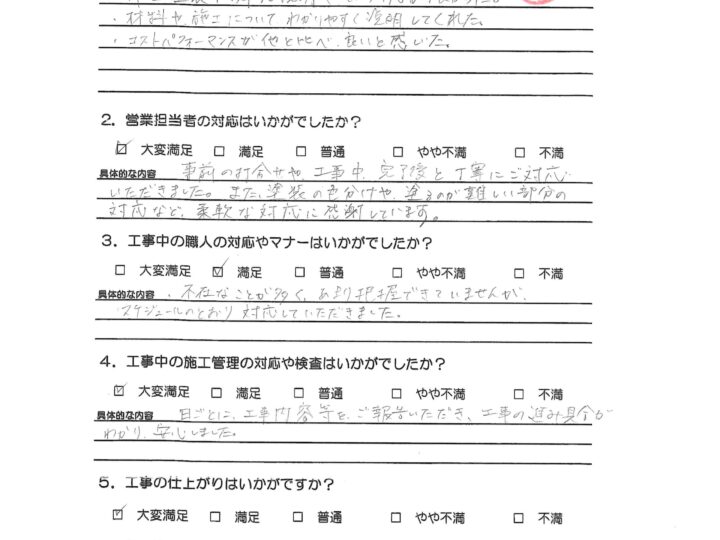 ・材料や施工についてわかりやすく説明してくれた。
・コストパフォーマンスが他と比べ、良いと感いた。
2．営業担当者の対応はいかがでしたか？
☑ 大変満足 □ 満足 □ 普通 □ やや不満 □ 不満
具体的な内容 事前の打合せや、工事中、完了後と丁寧にご対応
いただきました。また、塗装の色分けや、塗るのが難しい部分の
対応など、柔軟な対応に感謝しています。
3．工事中の職人の対応やマナーはいかがでしたか？
□ 大変満足 ☑ 満足 □ 普通 □ やや不満 □ 不満
具体的な内容 ・不在なことが多く、あまり把握できていませんが、
スケジュールのとおり対応していただきました。
4．工事中の施工管理の対応や検査はいかがでしたか？
☑ 大変満足 □ 満足 □ 普通 □ やや不満 □ 不満
具体的な内容 日ごとに、工事内容等を、ご報告いただき、工事の進み具合が
わかり、安心しました。
5．工事の仕上がりはいかがですか？
☑ 大変満足 □ 満足 □ 普通 □ やや不満 □ 不満